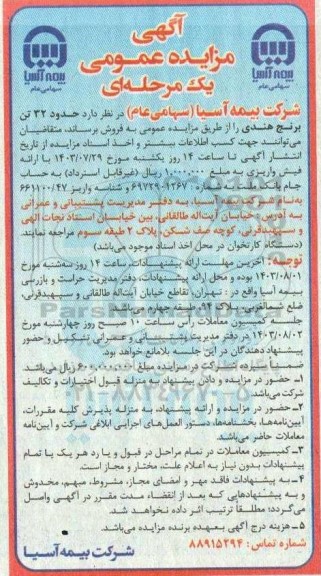 آگهی
مزایده عمومی
یک مرحله‌ای
بیمه آسیا
سهامی عام
بیمه آسیا
سهامی عام
شرکت بیمه آسیا (سهامی عام) در نظر دارد حدود ۳۲ تن
برنج هندی را از طریق مزایده عمومی به فروش برساند، متقاضیان
می‌توانند جهت کسب اطلاعات بیشتر و اخذ اسناد مزایده از تاریخ
انتشار آگهی تا ساعت ۱۴ روز یکشنبه مورخ ۱۴۰۳/۰۷/۲۹ با ارائه
فیش واریزی به مبلغ ۱،۰۰۰،۰۰۰ ریال (غیرقابل استرداد) به حساب
جام بانک و شناسه واریز
به‌نام شرکت بیمه آسیا، به دفتر مدیریت پشتیبانی و عمرانی
به آدرس: خیابان آیت‌اله طالقانی، بین خیابان استاد نجات الهی
و سپهبدقرنی، کوچه صف شکن، پلاک ۲ طبقه سوم مراجعه نمایند.
(دستگاه کارتخوان در محل اخذ اسناد موجود می‌باشد)
توصیه: آخرین مهلت ارائه پیشنهادات، ساعت ۱۴ روز سه‌شنبه مورخ
۱۴۰۳/۰۸/۰۱ بوده و محل ارائه پیشنهادات، دفتر مدیریت حراست و بازرسی
بیمه آسیا واقع در: تهران، تقاطع خیابان آیت‌اله طالقانی و سپهبدقرنی،
ضلع شمال‌غربی، پلاک طبقه چهارم می‌باشد.
جلسه کمیسیون معاملات رأس ساعت ۱۰ صبح روز چهارشنبه مورخ
۱۴۰۳/۰۸/۰۲ در دفتر مدیریت پشتیبانی و عمرانی تشکیل و حضور
پیشنهاد دهندگان در این جلسه بلامانع خواهد بود.
ضمناً سپرده شرکت در مزایده مبلغ ریال می‌باشد.
۱- حضور در مزایده و دادن پیشنهاد به منزله قبول اختیارات و تکالیف
شرکت می‌باشد.
۲- حضور در مزایده و ارائه پیشنهاد، به منزله پذیرش کلیه مقررات،
آیین‌نامه‌ها، بخشنامه‌ها، دستور العمل‌های اجرایی ابلاغی شرکت و آیین‌نامه
معاملات حاضر می‌باشد.
۳- کمیسیون معاملات در تمام مراحل در قبول و یا رد هر یک یا تمام
پیشنهادات بدون نیاز به اعلام علت، مختار و مجاز است.
۴- به پیشنهادات فاقد مهر و امضای مجاز، مشروط، مبهم، مخدوش
و به پیشنهادهایی که بعد از انقضاء مدت مقرر در آگهی واصل
می‌گردد؛ مطلقاً ترتیب اثر داده نخواهد شد.
۵- هزینه درج آگهی به‌عهده برنده مزایده می‌باشد.
شماره تماس: ۸۸۹۱۵۲۹۴
شرکت بیمه آسیا